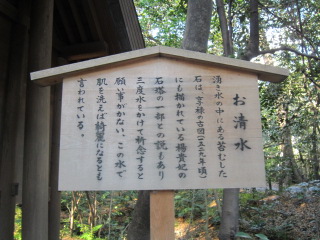 お清水
湧き水の中にある苔むした
石は、享禄の古図（一五二九年頃）
にも描かれている楊貴妃の
石塔の一部との説もあり
三度水をかけて祈念すると
願い事がかない、この水で
肌を洗えば綺麗になるとも
言われている。